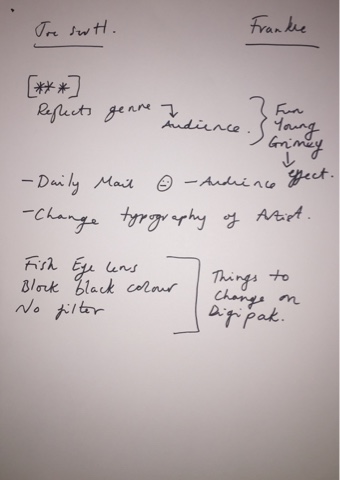 Joe swtt. Frankie
[***]
Reflects genre → Audience. } Fun
Young
Grimey
↓
effect.
- Daily Mail ☹ - Audience
- Change typography of Artist.
Fish Eye lens
Block black colour
No filter
Things to
change on
Digipak.